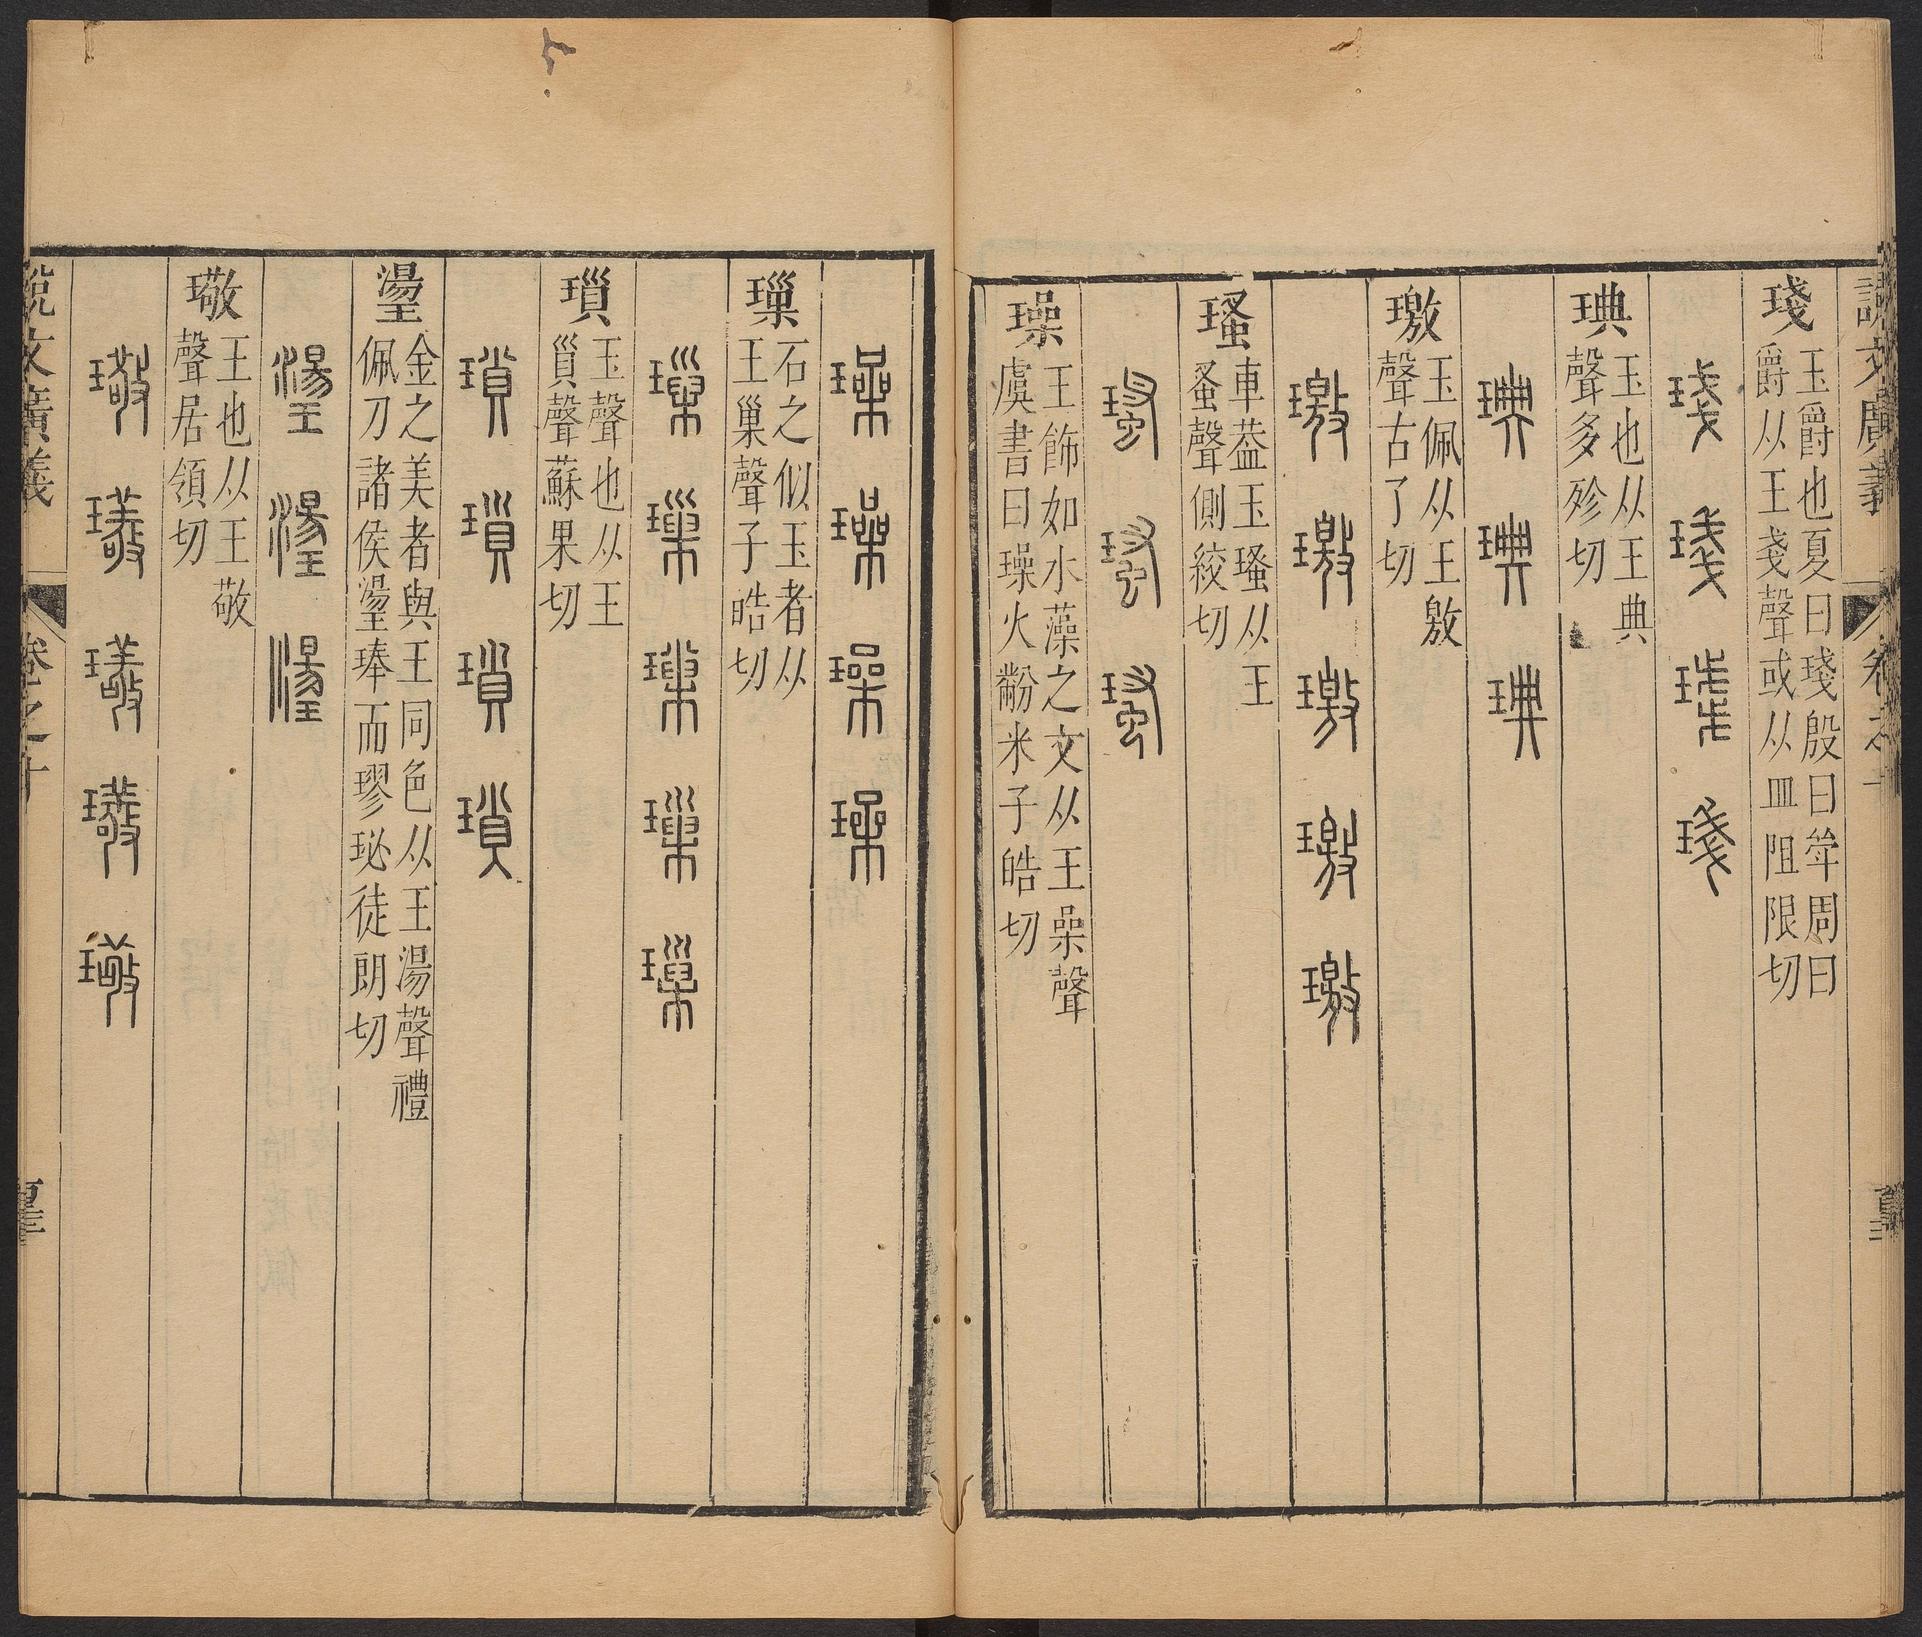 說文廣義 卷之十
琖
玉爵也夏曰琖殷曰斝周曰
爵从王戔聲或从皿阻限切
琖 琖 琖 琖
琠
玉也从王典
聲多殄切
琠 琠 琠
璬
玉佩从王敫
聲古了切
璬 璬 璬 璬 璬
瑵
車葢玉瑵从王
蚤聲側絞切
瑵 瑵 瑵
璪
王飾如水藻之文从王喿聲
虞書曰璪火黺米子皓切
璪 璪 璪 璪
璅
石之似玉者从
王巢聲子皓切
璅 璅 璅 璅 璅
瑣
玉聲也从王
𧴪聲蘇果切
瑣 瑣 瑣 瑣
璗
金之美者與王同色从王湯聲禮
佩刀諸侯璗琫而璆珌徒朗切
璗 璗 璗
璥
王也从王敬
聲居領切
璥 璥 璥 璥 璥
說文廣義 卷之十